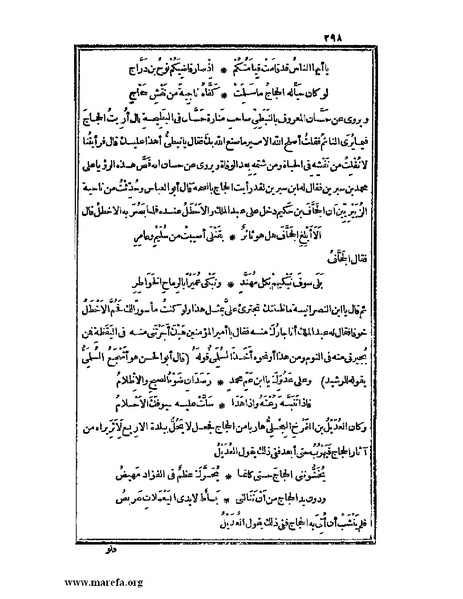 ٢٩٨
ياأيها الناس قد قامت قيامتكم * اذ صار قاضيكم نوح بن دراج
لو كان حياله الحجاج ما سلمت * كفاه ناجية من نقش حجاج
ويروى عن حسان المعروف بالنبطي صاحب منارة حسان في البطيحة قال أريت الحجاج
فيما يرى النائم فقلت أصلح الله الأمير ما صنع الله بك فقال يا نبطي أهذا عليك قال فرأيتنا
لا نفلت من نقشه في الحياة ومن شتمه بعد الوفاة ويروى عن حسان انه قص هذه الرؤيا على
محمد بن سيرين فقال له ابن سيرين لقد رأيت الحجاج بالصحة قال أبو العباس وحدثت من ناحية
الزبيريين أن الجحاف بن حكيم دخل على عبد الملك والأخطل عنده فلما بصر به الاخطل قال
ألا أبلغ الجحاف هل هو ثائر * بقتلى أصيبت من سليم وعامر
فقال الجحاف
بلى سوف نبكيهم بكل مهند * ونبكي عميرا بالرماح الخواطر
ثم قال يا ابن النصرانية ما ظننتك تجترئ علي بمثل هذا ولو كنت مأسورا لك فحم الأخطل
خوفا فقال له عبد الملك أنا جارك منه فقال يا أمير المؤمنين هبك أجرتني منه في اليقظة فمن
يجيرني منه في النوم ومن هذا أو نحوه أخذ السلمي قوله (قال أبو الحسن هو أشجع السلمي
يقوله للرشيد) وعلى عدوك يا ابن عم محمد * رصدان ضوء الصبح والإظلام
فاذا تنبه رعته واذا هدا * سلت عليه سيوفك الأحلام
وكان العديل بن الفرخ العجلي هاربا من الحجاج فجعل لا يحل ببلدة الا ريع لأثر يراه من
آثار الحجاج فيهرب حتى أبعد ففي ذلك يقول العديل
يخشونني الحجاج حتى كانما * يحرك عظم في الفؤاد مهيض
ودون يد الحجاج من أن تنالني * بساط لايدى اليعملات عريض
فلم ينشب أن أتى به الحجاج ففي ذلك يقول العديل
ولو
www.marefa.org